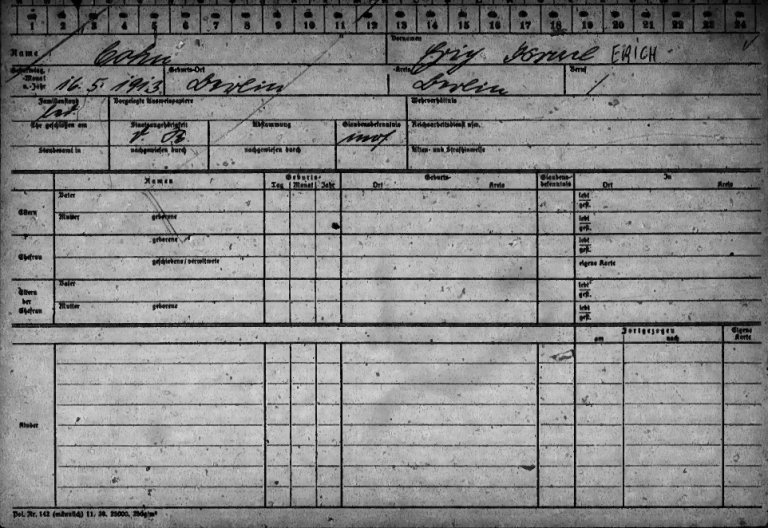 1 2 3 4 5 6 7 8 9 10 11 12 13 14 15 16 17 18 19 20 21 22 23 24
Name Cohn Vornamen Israel ERICH
Geburtstag, -Monat u. -Jahr 16. 5. 1913 Geburts-Ort Berlin Kreis Berlin Beruf /
Familienstand led. Vorgelegte Ausweispapiere Wehrverhältnis
Ehe geschlossen am Staatsangehörigkeit D. R. Abstammung Glaubensbekenntnis mos. Reichsarbeitsdienst usw.
Standesamt in nachgewiesen durch nachgewiesen durch Akten- und Strafhinweise
Namen Geburts- Geburts- Glaubens- In
Tag Monat Jahr Ort Kreis bekenntnis Ort Kreis
Eltern Vater lebt gest.
Mutter geborene lebt gest.
Ehefrau geborene lebt gest.
geschiedene/verwitwete eigene Karte
Eltern der Ehefrau Vater lebt gest.
Mutter geborene lebt gest.
Fortgezogen Eigene
am nach Karte
Kinder
Pol. Nr. 142 (männlich) 11. 38. 25000.